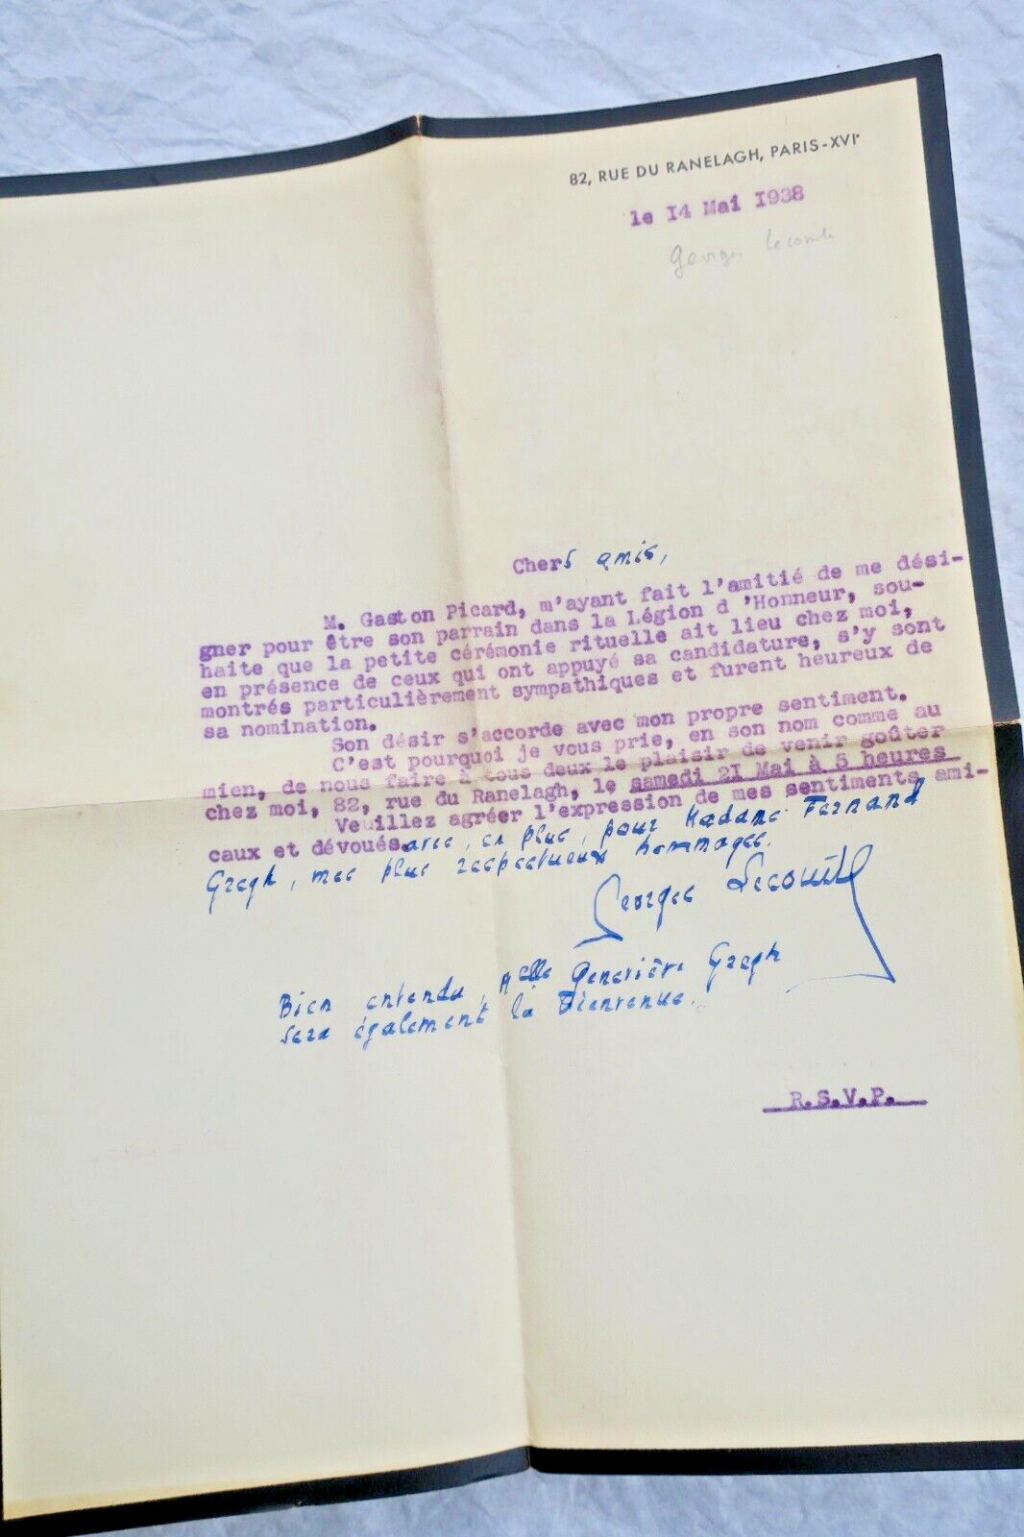 82, RUE DU RANELAGH, PARIS-XVIᵉ
le I4 Mai I938
Georges Lecomte
Chers amis,
M. Gaston Picard, m'ayant fait l'amitié de me dési-
gner pour être son parrain dans la Légion d 'Honneur, sou-
haite que la petite cérémonie rituelle ait lieu chez moi,
en présence de ceux qui ont appuyé sa candidature, s'y sont
montrés particulièrement sympathiques et furent heureux de
sa nomination.
Son désir s'accorde avec mon propre sentiment.
C'est pourquoi je vous prie, en son nom comme au
mien, de nous faire à tous deux le plaisir de venir goûter
chez moi, 82, rue du Ranelagh, le samedi 2I Mai à 5 heures
Veuillez agréer l'expression de mes sentiments ami-
caux et dévoués. avec, en plus, pour Madame Fernand
Gregh, mes plus respectueux hommages.
Georges Lecomte
Bien entendu, Melle Geneviève Gregh
sera également la bienvenue.
R.S.V.P.